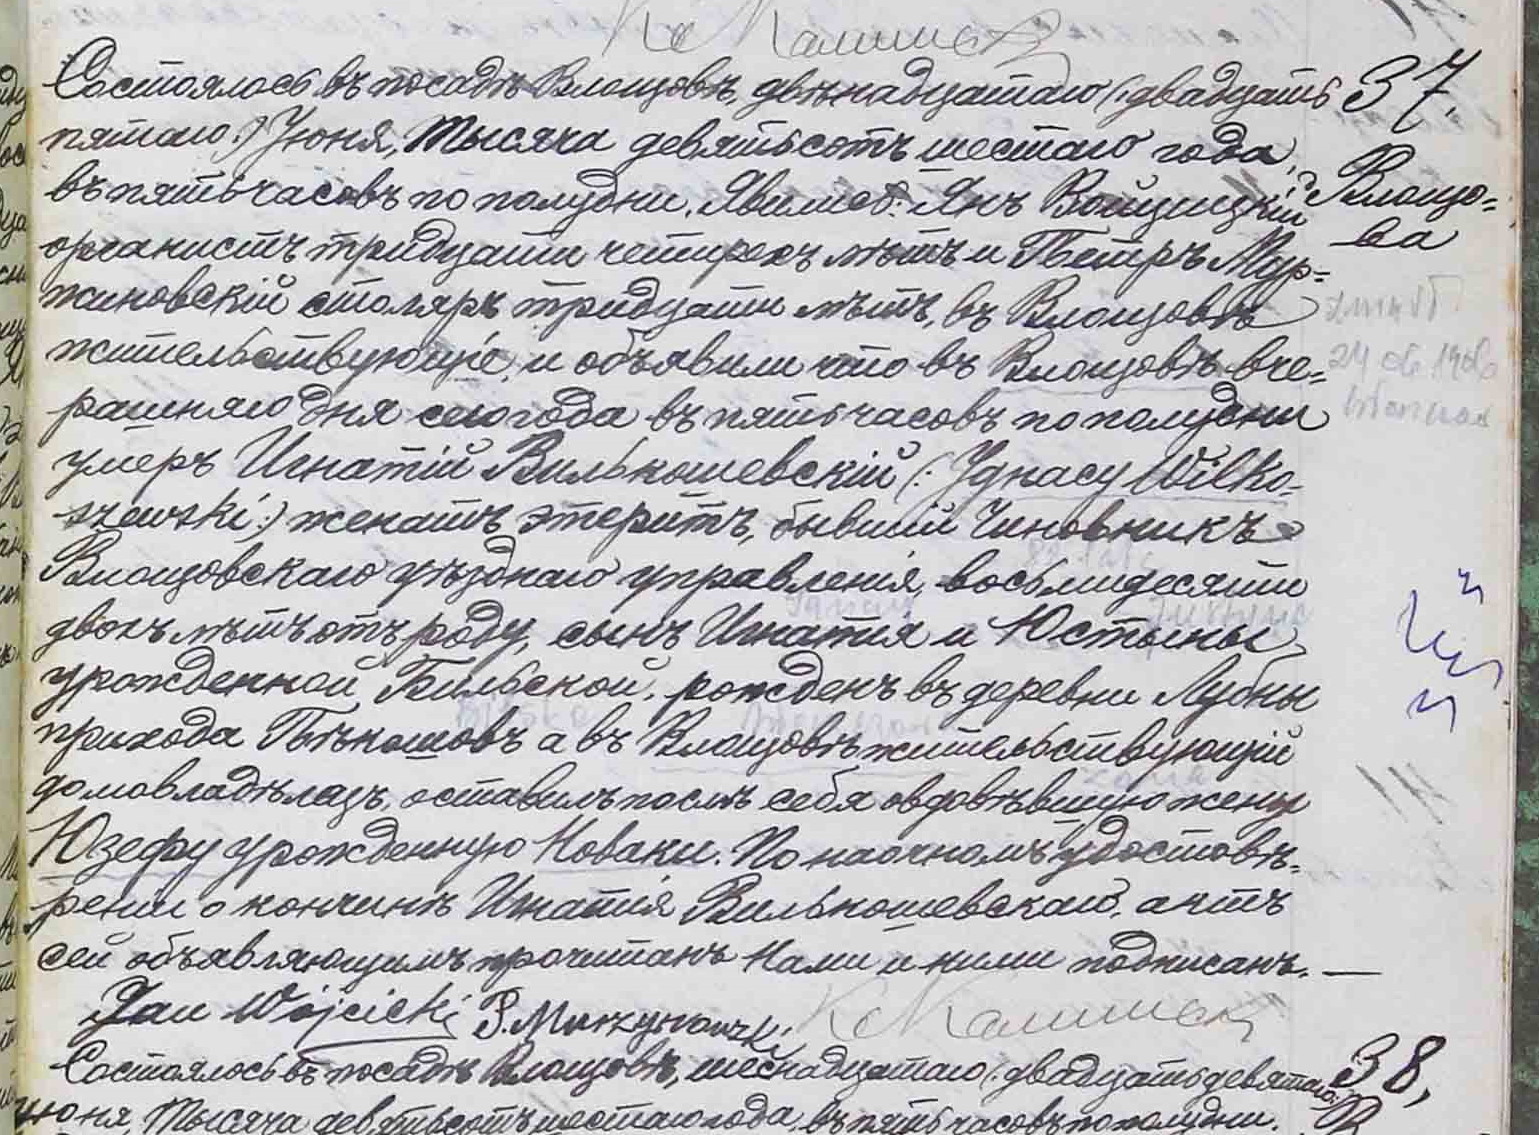 Кс Калишек
Состоялось въ посадѣ Влощовѣ, двѣнадцатаго (: двадцать 37.
пятаго :) Іюня, тысяча девятьсотъ шестаго года,
въ пять часовъ по полудни. Явились: Янъ Войцицкій Влощо=
органистъ тридцати четырехъ лѣтъ и Петръ Мур= ва
жиновскій столяръ тридцати лѣтъ, въ Влощовѣ
жительствующіе, и объявили что въ Влощовѣ вче= 24 06 1906
рашняго дня сего года въ пять часовъ по полудни
умеръ Игнатій Вилькошевскій (: Ignacy Wilko-
szewski :) женатъ этеритъ, бывшій Чиновникъ
Влощовскаго уѣзднаго управленія, восьмидесяти
двохъ лѣтъ отъ роду, сынъ Игнатія и Юстыны
урожденной Бильской, рожденъ въ деревни Лубны
прихода Пѣкошовъ а въ Влощовѣ жительствующій
домовладѣлецъ, оставилъ послѣ себя овдовѣвшую жену
Юзефу урожденную Новаки. По наочномъ удостовѣ-
реніи о кончинѣ Игнатія Вилькошевскаго, актъ
сей объявляющимъ прочитанъ Нами и ними подписанъ. —
Jan Wójcicki P. Murzynowski Кс Калишек
Состоялось въ посадѣ Влощовѣ, шеснадцатаго (: двадцать девятаго :) 38,
Іюня, тысяча девятьсотъ шестаго года, въ пять часовъ по полудни.